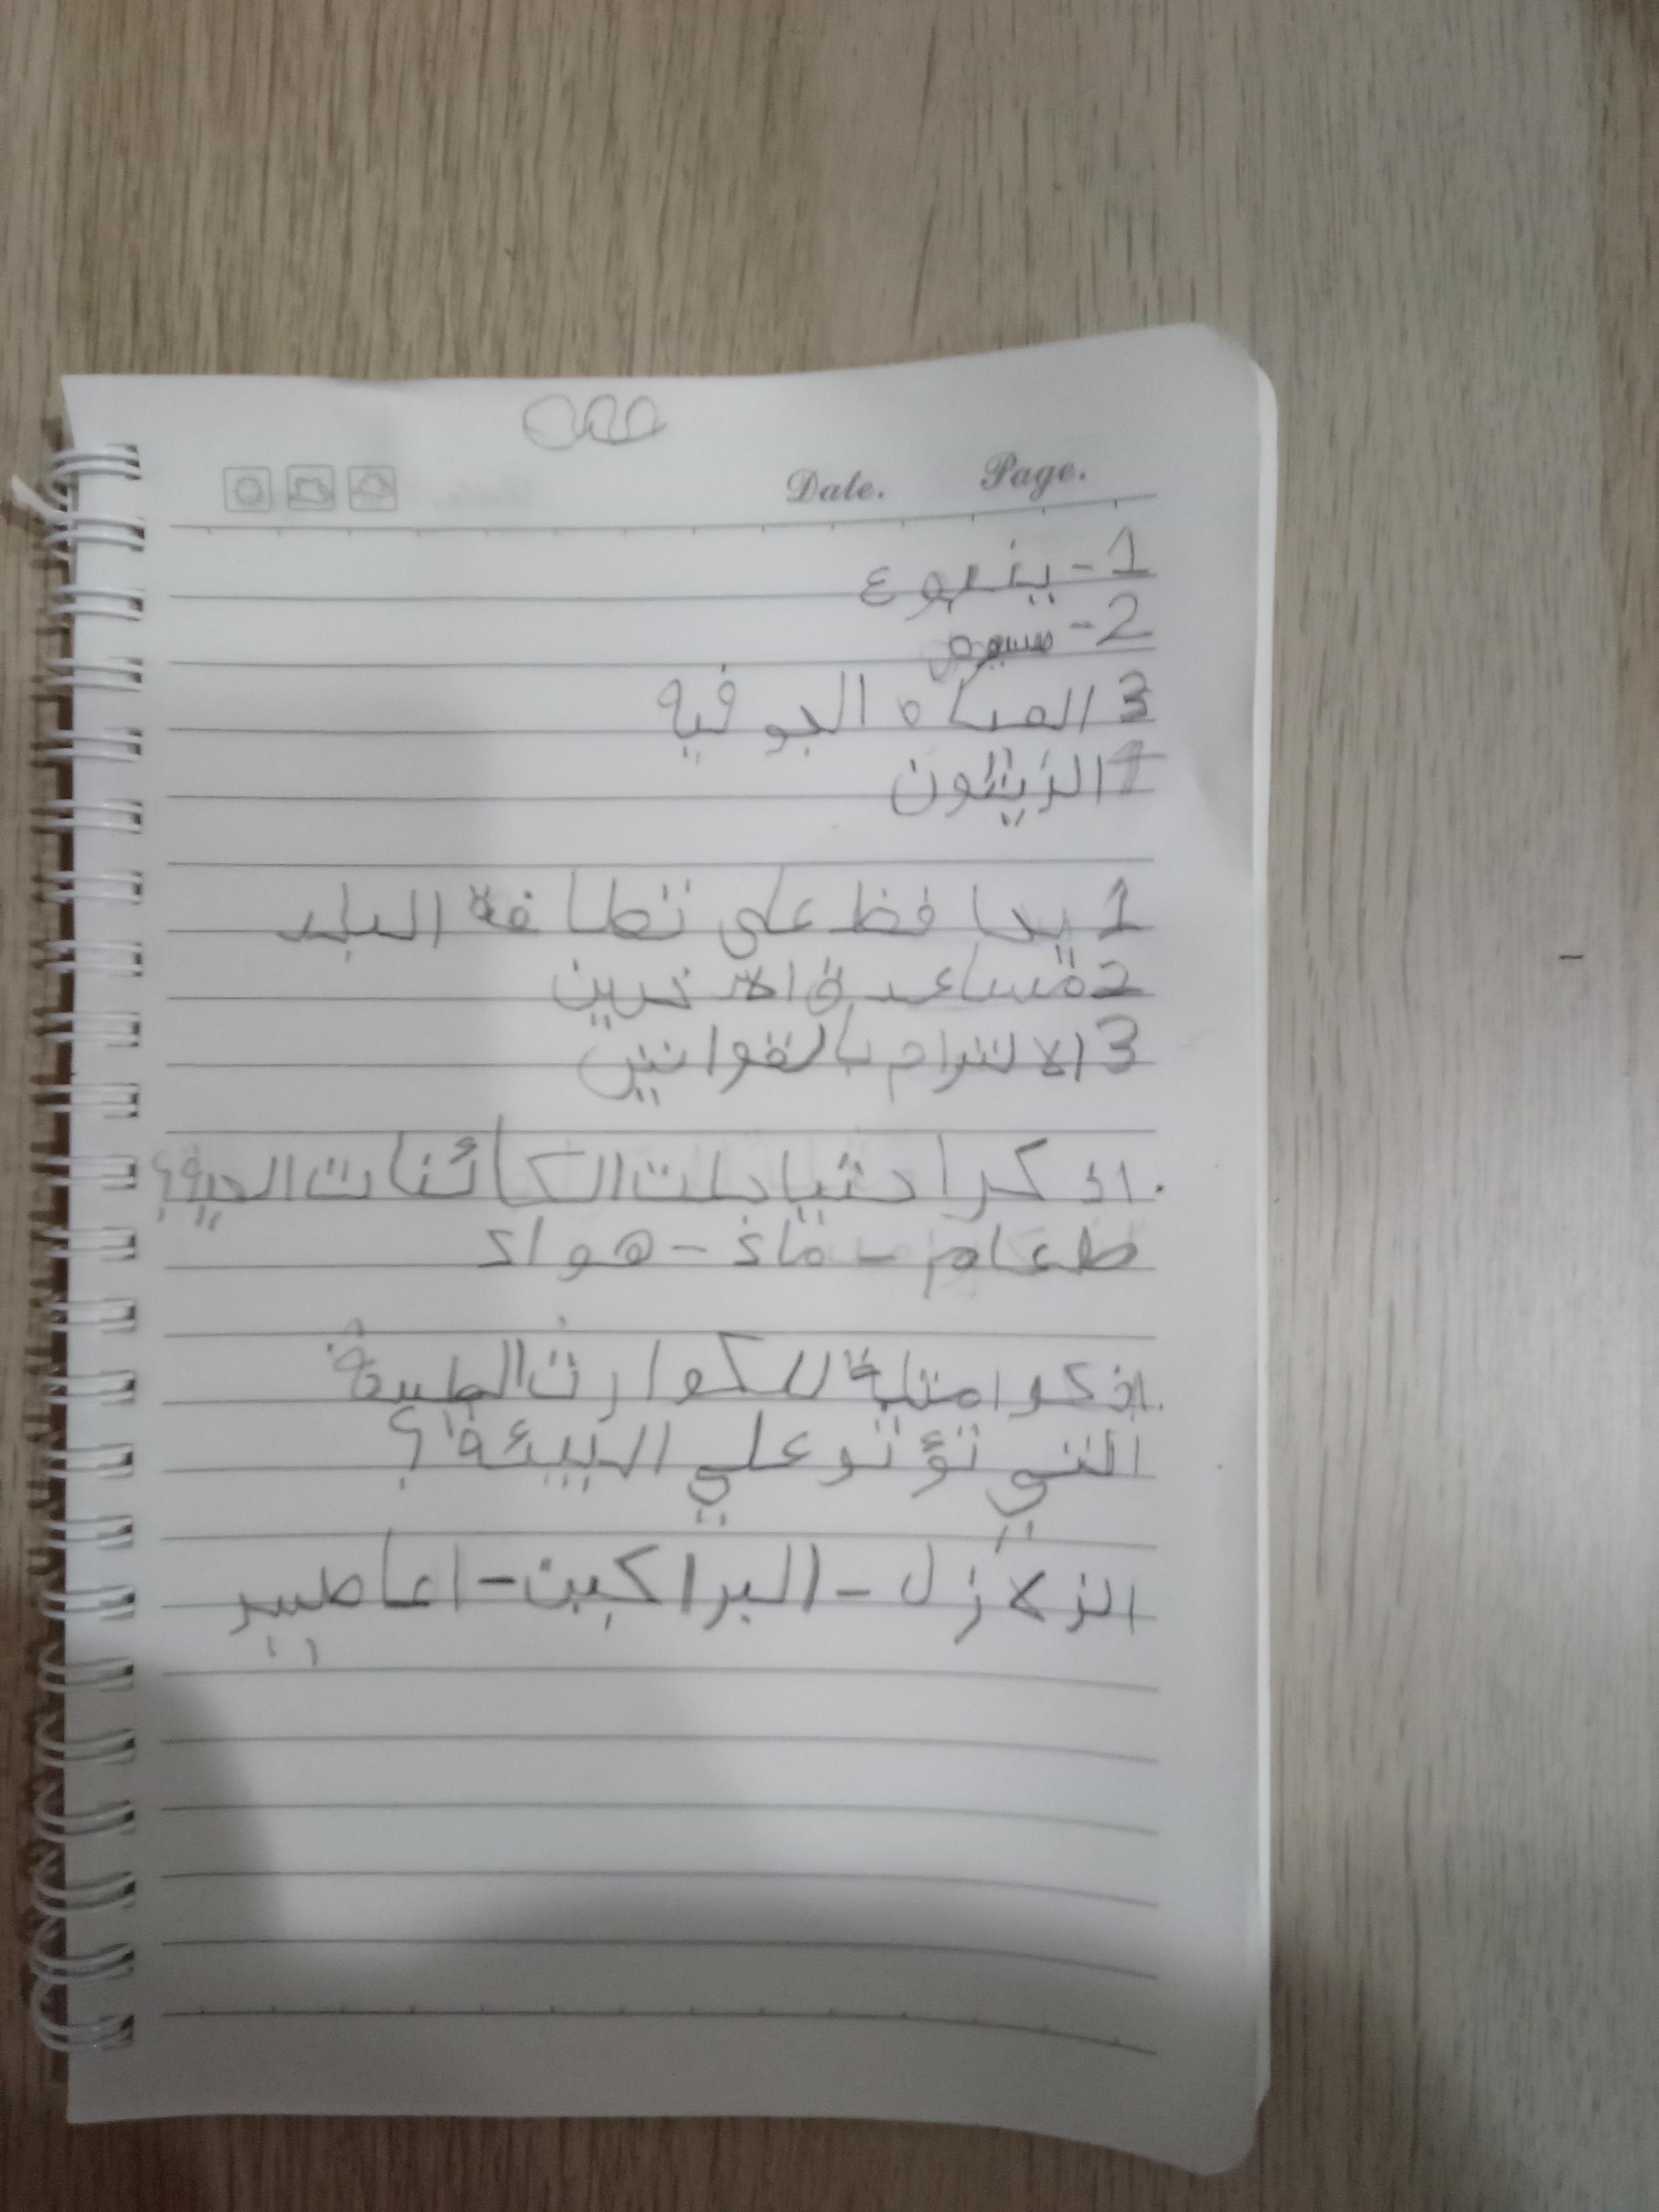 Date. Page.
1- ينبوع
2-
3 المياه الجوفيه
4 الزيتون
1 يحافظ على نظافة البلد
2 مساعدة الاخرين
3 الالتزام بالقوانين
. اذكر احتياجات الكائنات الحية؟
طعام - ماء - هواء
. اذكر امثلة للكوارث الطبيعة
التي تؤثر علي البيئة؟
الزلازل - البراكين - اعاصير